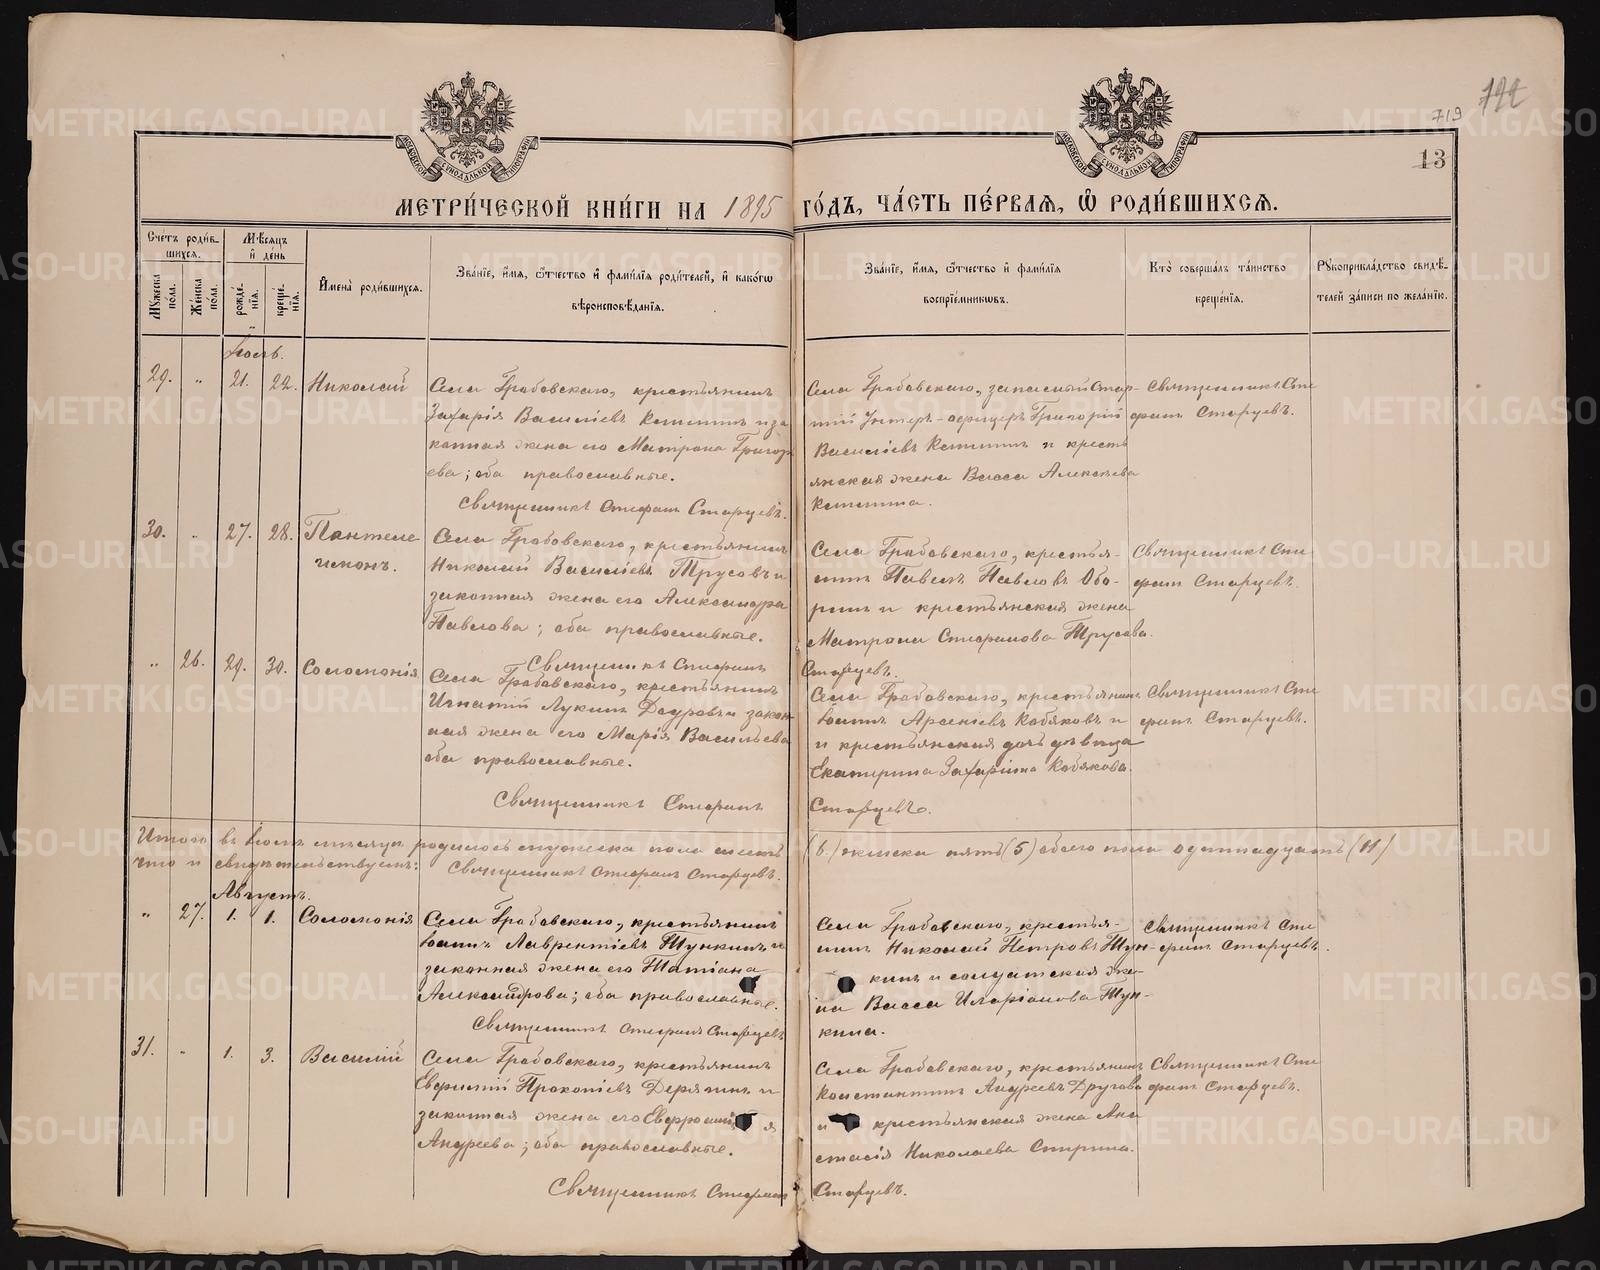 719
122
13
МЕТРИ́ЧЕСКОЙ КНИ́ГИ НА 1895 ГО́ДЪ, ЧА́СТЬ ПЕ́РВАѦ, Ѡ҆ РОДИ́ВШИХСѦ.
Сче́тъ роди́вшихсѧ.
Мꙋ́жеска по́ла.
Же́нска по́ла.
Мѣ́сѧцъ и҆ де́нь
рожде́нїѧ.
креще́нїѧ.
И҆мена̀ роди́вшихсѧ.
Зва́нїе, и҆́мѧ, ѻ҆́тчество и҆ фами́лїѧ роди́телей, и҆ како́гѡ
вѣроисповѣ́данїѧ.
Зва́нїе, и҆́мѧ, ѻ҆́тчество и҆ фами́лїѧ
воспрїе́мникѡвъ.
Кто̀ соверша́лъ та́инство
креще́нїѧ.
Рꙋкоприкла́дство свидѣ́телей за́писи по жела́нїю.
Іюль.
29. „ 21. 22. Николай
Села Грабовскаго, крестьянинъ
Захарія Василіевъ и за
конная жена его Матрона Григор
ева; оба православные.
Священникъ Стефанъ Старцевъ.
Села Грабовскаго, запасный Стар-
шій Унтеръ-офицеръ Григорій
Василіевъ и кресть
янская жена Васса Алексѣева
Священникъ Сте
фанъ Старцевъ.
30. „ 27. 28. Пантеле
имонъ.
Села Грабовскаго, крестьянинъ
Николай Василіевъ Трусовъ и
законная жена его Александра
Павлова; оба православные.
Священникъ Стефанъ
Села Грабовскаго, крестья-
нинъ Павелъ Павловъ Обо-
ринъ и крестьянская жена
Матрона Стефанова Трусова.
Старцевъ.
Священникъ Сте
фанъ Старцевъ.
„ 26. 29. 30. Соломонія
Села Грабовскаго, крестьянинъ
Игнатій Лукинъ и закон
ная жена его Марія Васильева
оба православные.
Священникъ Стефанъ
Села Грабовскаго, крестьянинъ
Іоаннъ Арсеніевъ Кобяковъ и
и крестьянская дочь дѣвица
Екатерина Захаріина Кобякова.
Старцевъ.
Священникъ Сте
фанъ Старцевъ.
Итого въ Іюлѣ мѣсяцѣ родилось мужеска пола шесть (6.) женска пять (5) обоего пола одиннадцать (11)
что и свидѣтельствуемъ: Священникъ Стефанъ Старцевъ.
Августъ.
„ 27. 1. 1. Соломонія
Села Грабовскаго, крестьянинъ
Іоаннъ Лаврентіевъ Тункинъ и
законная жена его Татіана
Александрова; оба православные.
Священникъ Стефанъ Старцевъ
Села Грабовскаго, крестья-
нинъ Николай Петровъ Тун-
кинъ и солдатская же-
на Васса Иларіонова Тун-
кина.
Священникъ Сте
фанъ Старцевъ.
31. „ 1. 3. Василій
Села Грабовскаго, крестьянинъ
Евфимій Прокопіевъ Дерягинъ и
законная жена его
Андреева; оба православные.
Священникъ Стефанъ
Села Грабовскаго, крестьянинъ
Константинъ Андреевъ Другова
и крестьянская жена Ана
стасія Николаева Спирина.
Старцевъ.
Священникъ Сте
фанъ Старцевъ.
METRIKI.GASO-URAL.RU